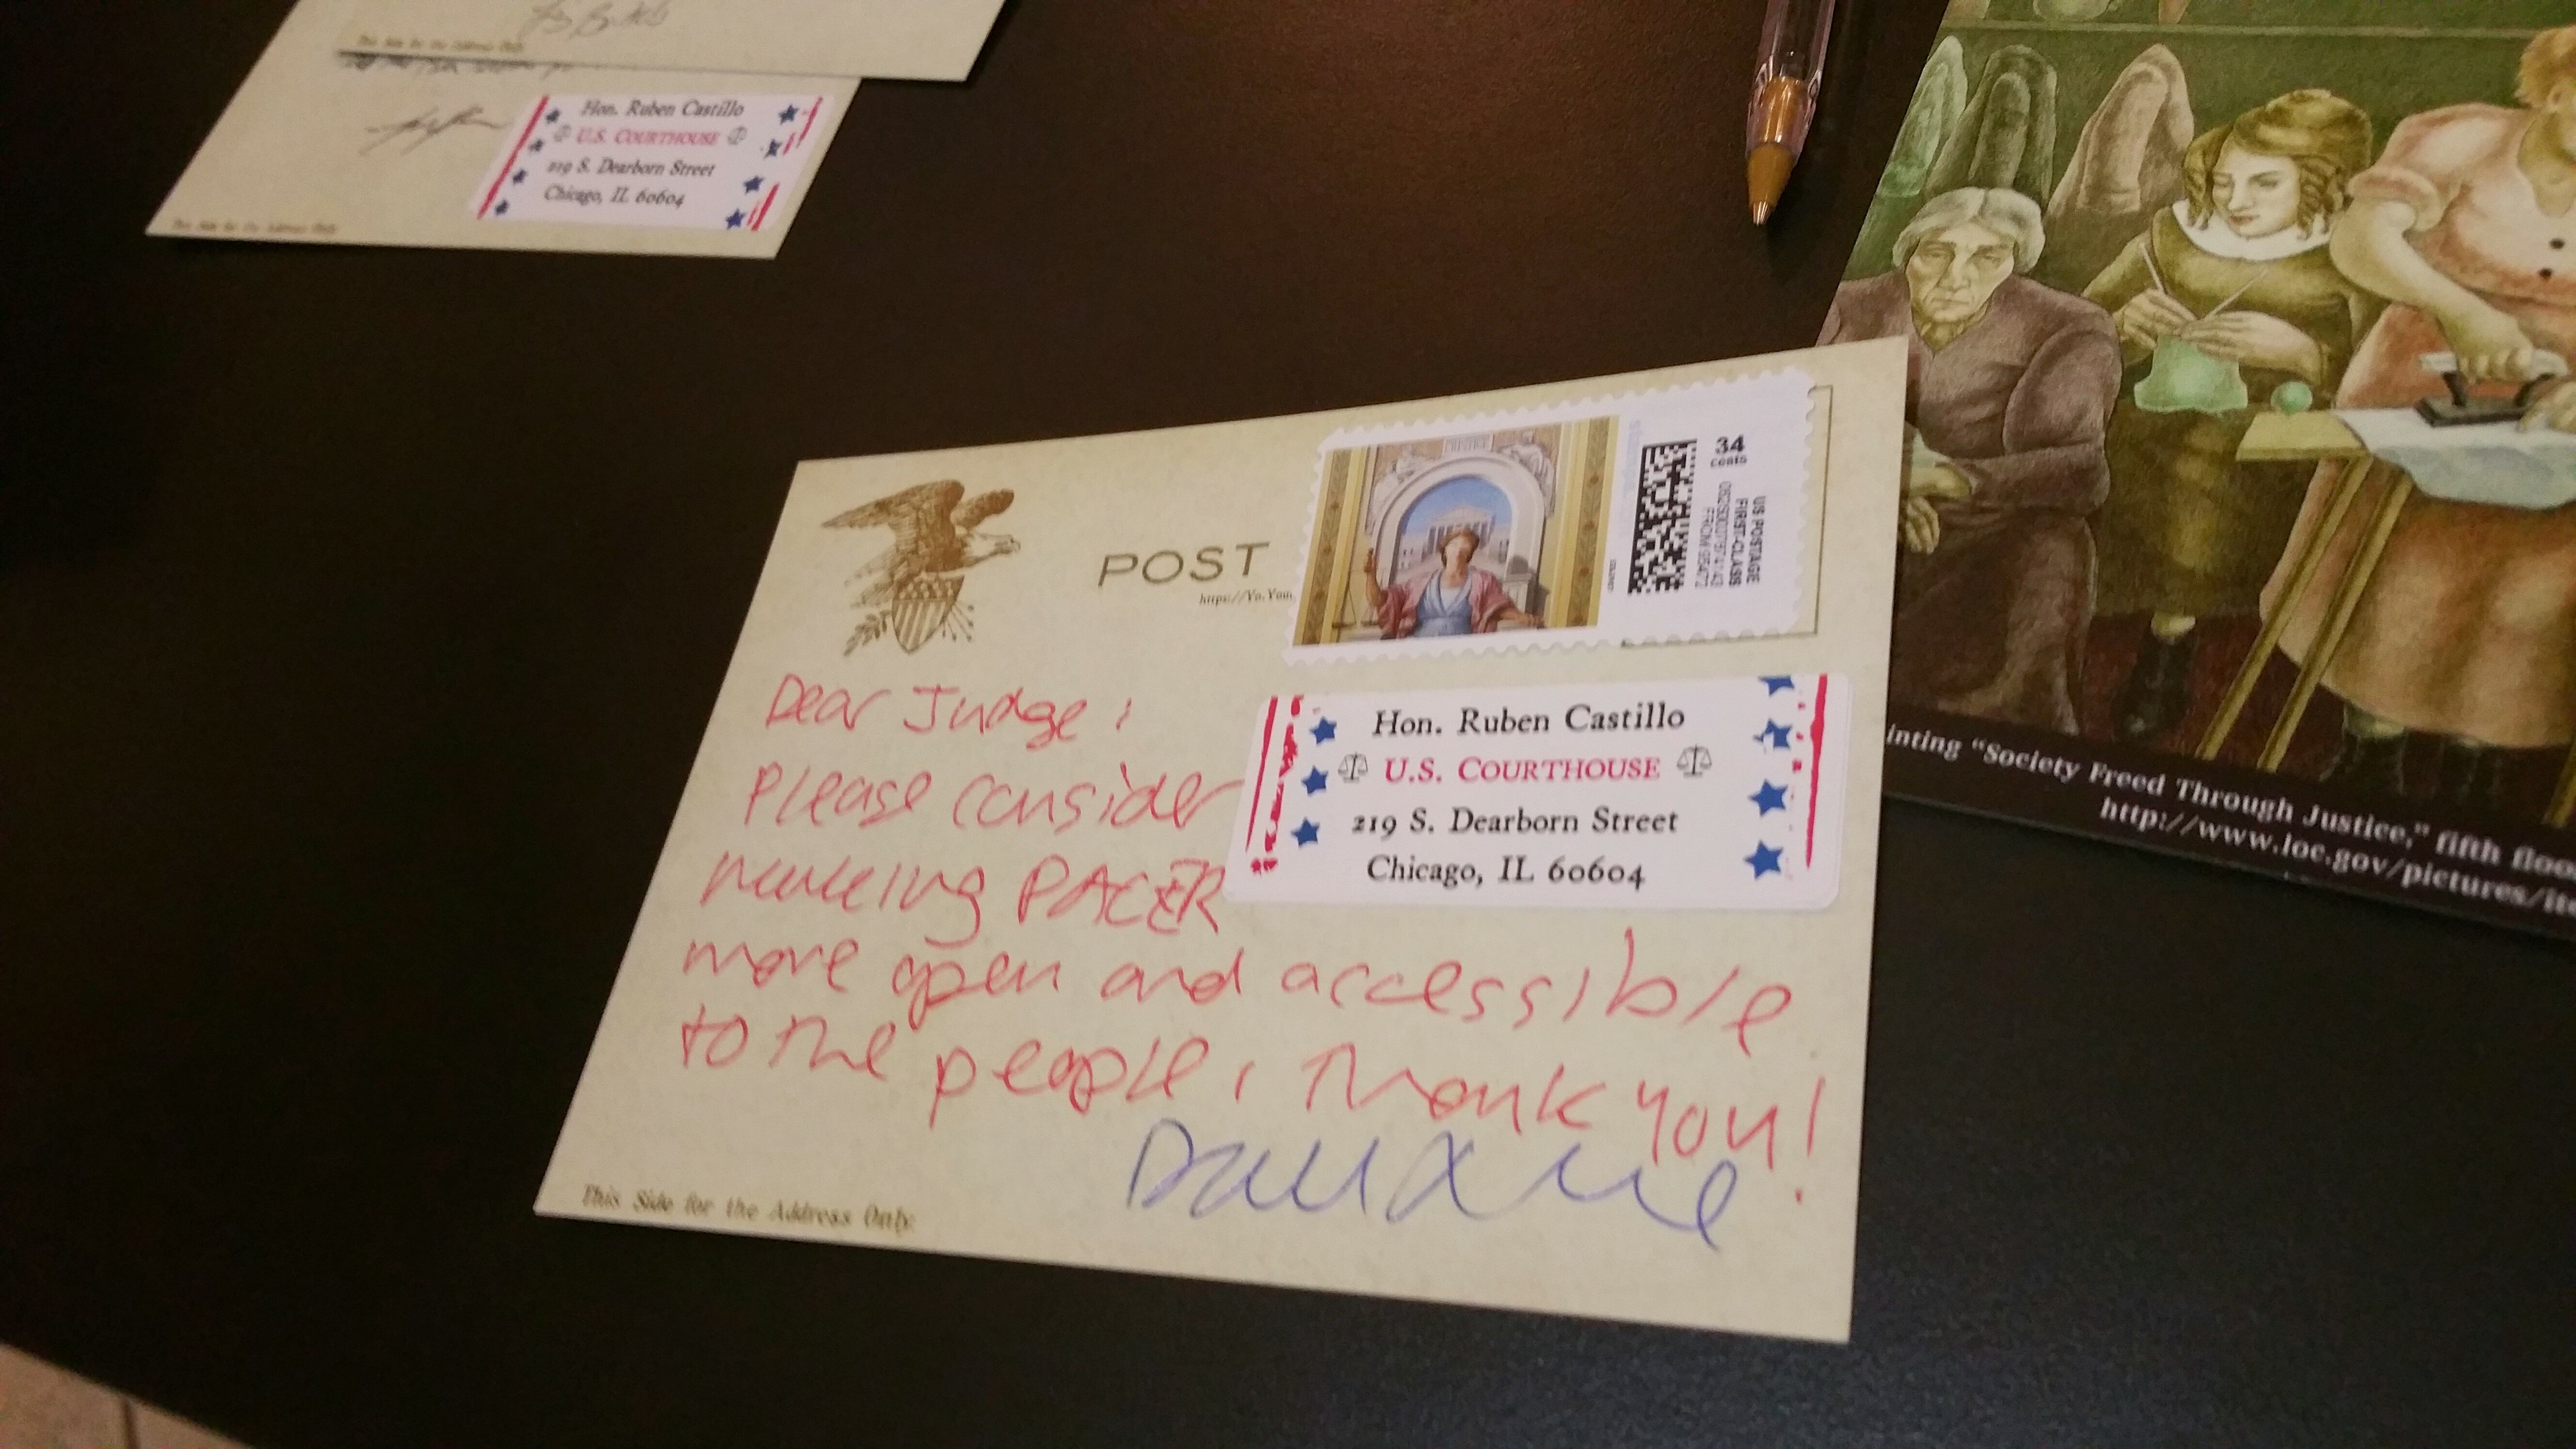 This Side for the Address Only
Hon. Ruben Castillo
U.S. COURTHOUSE
219 S. Dearborn Street
Chicago, IL 60604
This Side for the Address Only
POST
https://Yo.You
JUSTICE
34
Cents
US POSTAGE
FIRST-CLASS
FROM 95472
Dear Judge:
Please consider
making PACER
more open and accessible
to the people, Thank you!
Hon. Ruben Castillo
U.S. COURTHOUSE
219 S. Dearborn Street
Chicago, IL 60604
This Side for the Address Only.
inting “Society Freed Through Justice,” fifth floo
http://www.loc.gov/pictures/ite